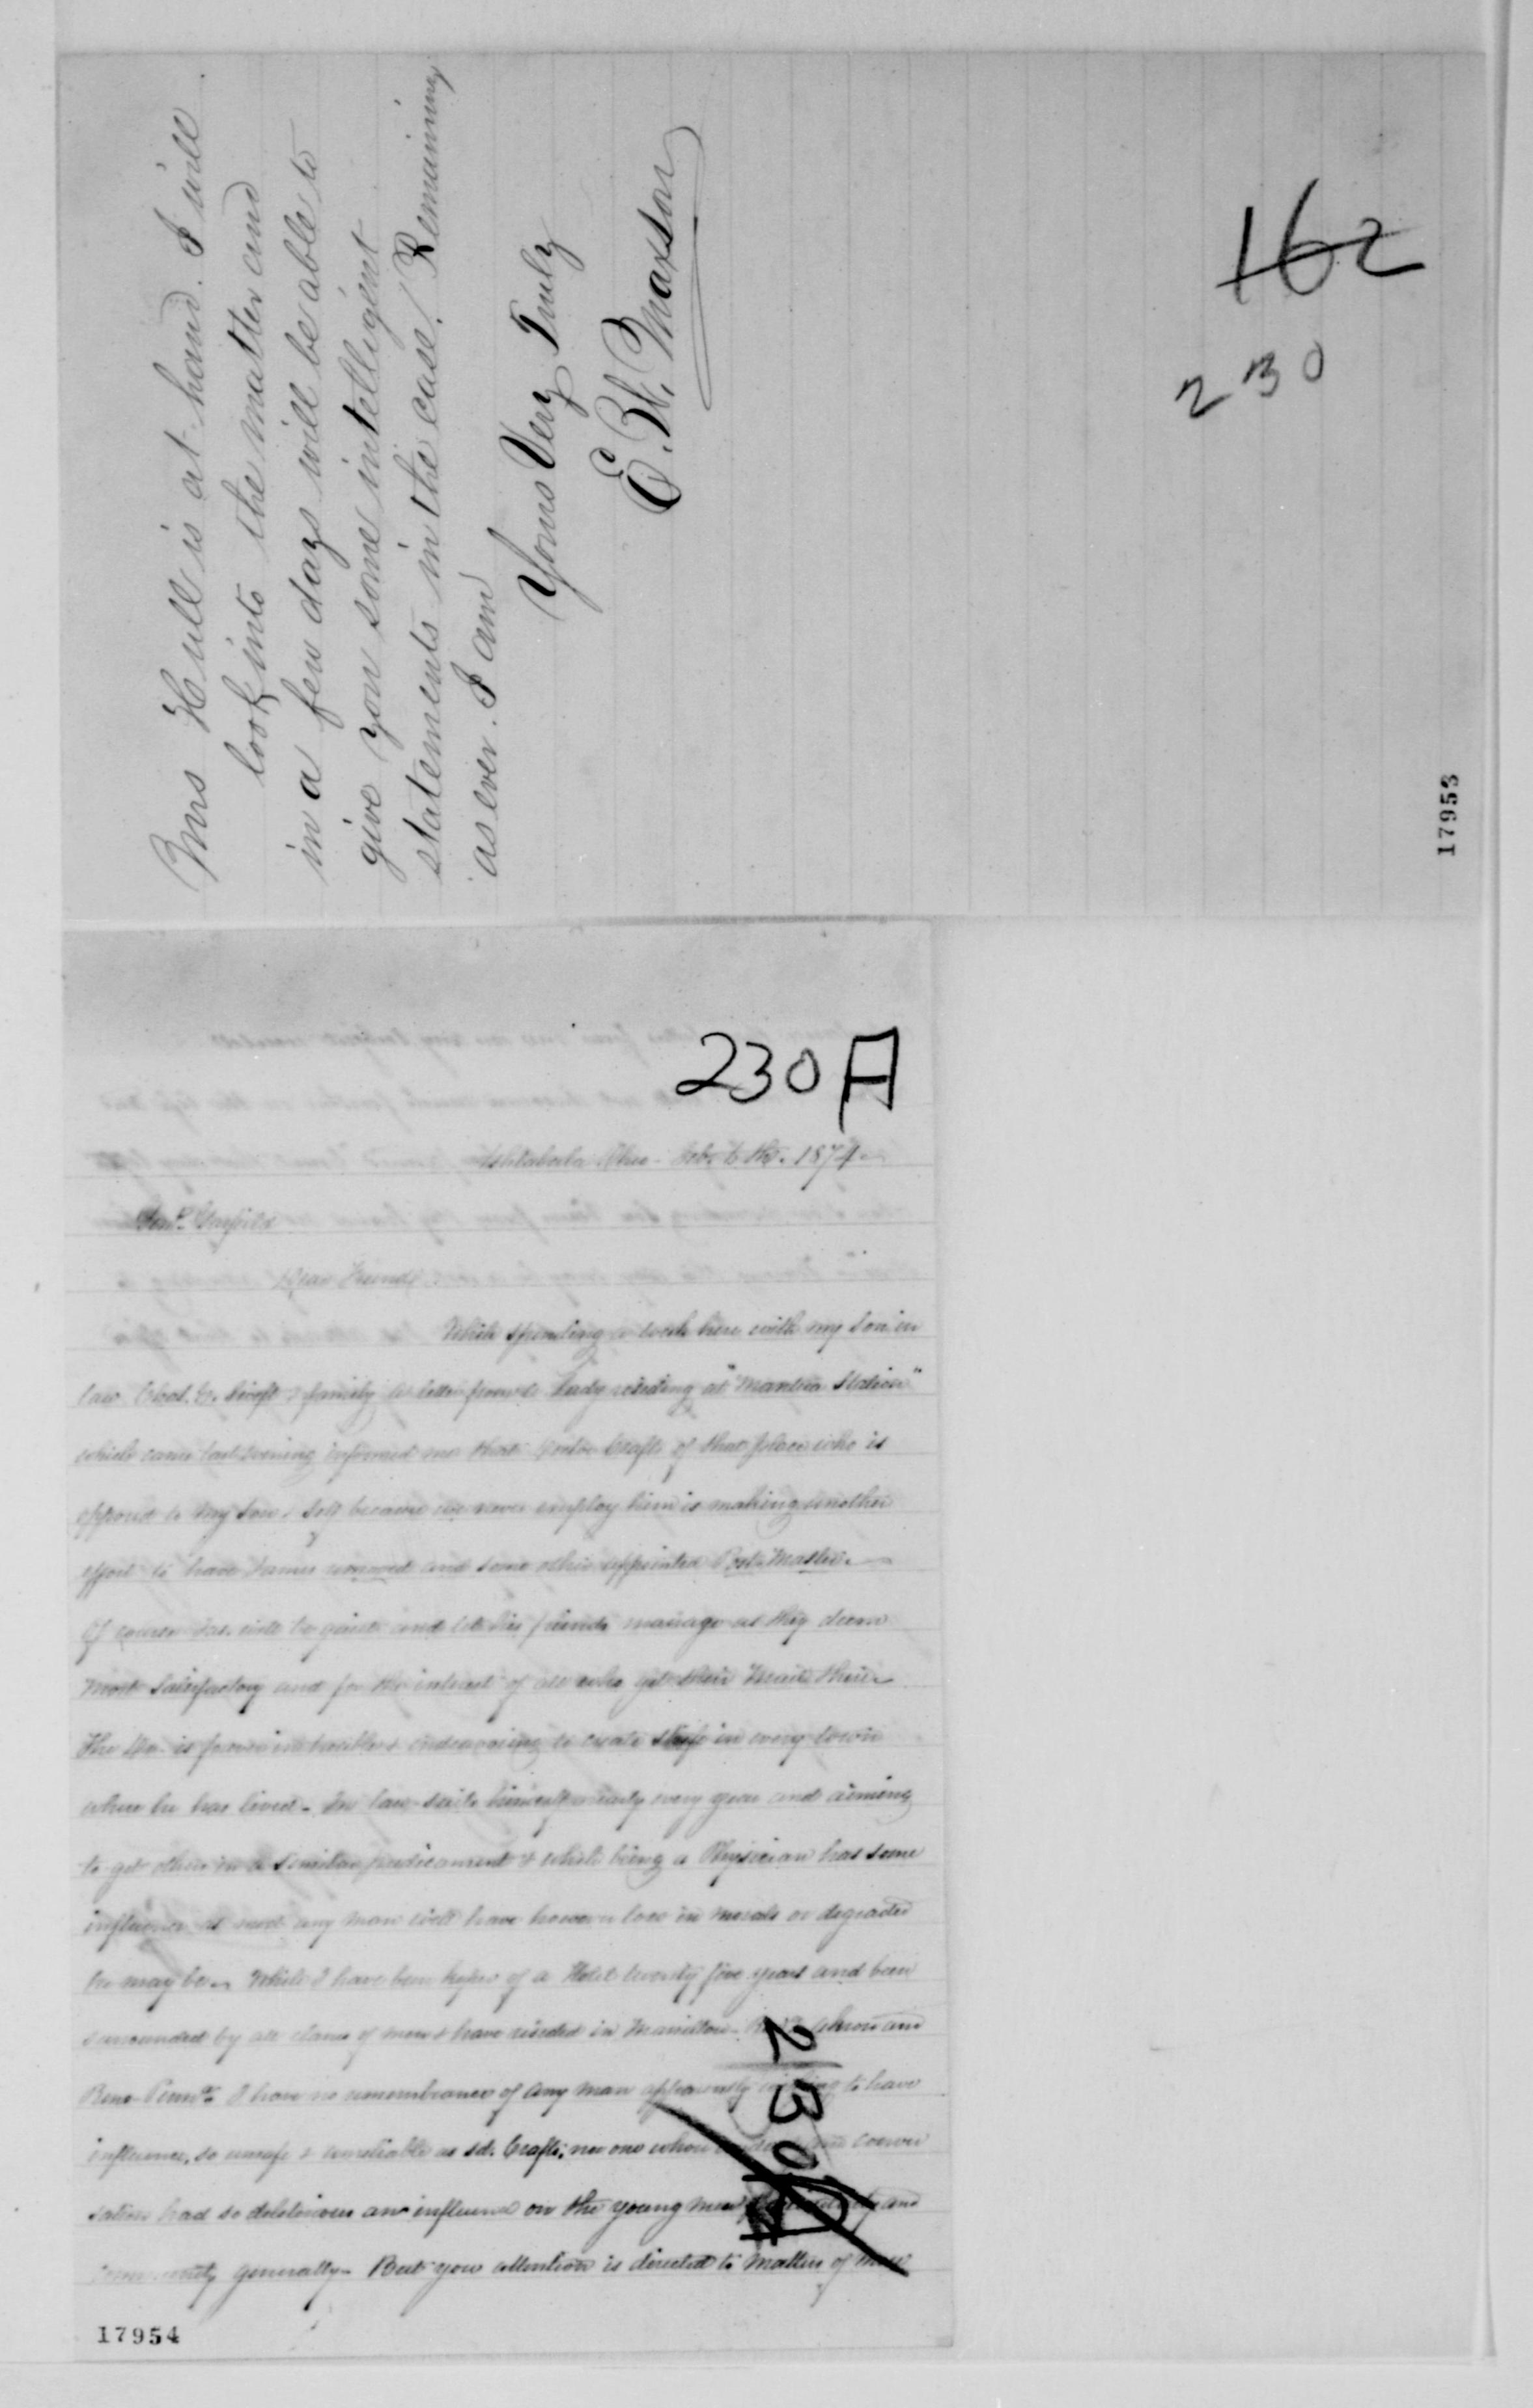 Mrs Hull is at hand. I will
look into the matter and
in a few days will be able to
give you some intelligent
statements in the case. Remaining
as ever. I am
Yours Very Truly
E. W. Maxson
162
230
17953
230 A
Ashtabula Ohio - Feb. 6th. 1874
Genl. Garfield
Dear Friend
While spending a week here with my son in
law Chas. E. Swift & family a letter from a Lady residing at "Mantua Station"
which came last evening informed me that Doctor Crafts of that place who is
opposed to my Son & self because we never employ him is making another
effort to have James removed and some other appointed Post Master.
Of course Jas. will be quiet and let his friends manage as they deem
most satisfactory and for the interest of all who get their Mail there
The Dr. is ever in trouble & endeavoring to create strife in every town
where he has lived - In law-suits himself nearly every year and aiming
to get others in a similar predicament & while being a Physician has some
influence as most any man will have however low in morals or degraded
he may be. While I have been keeper of a Hotel twenty five years and been
surrounded by all classes of men & have resided in Hamilton Akron and
Penna. I have no remembrance of any man apparently to have
influence, so unsafe & unreliable as sd. Crafts; nor one whose conver
sation had so deleterious an influence on the young men and
community generally - But your attention is directed to matters of more
230 A
17954